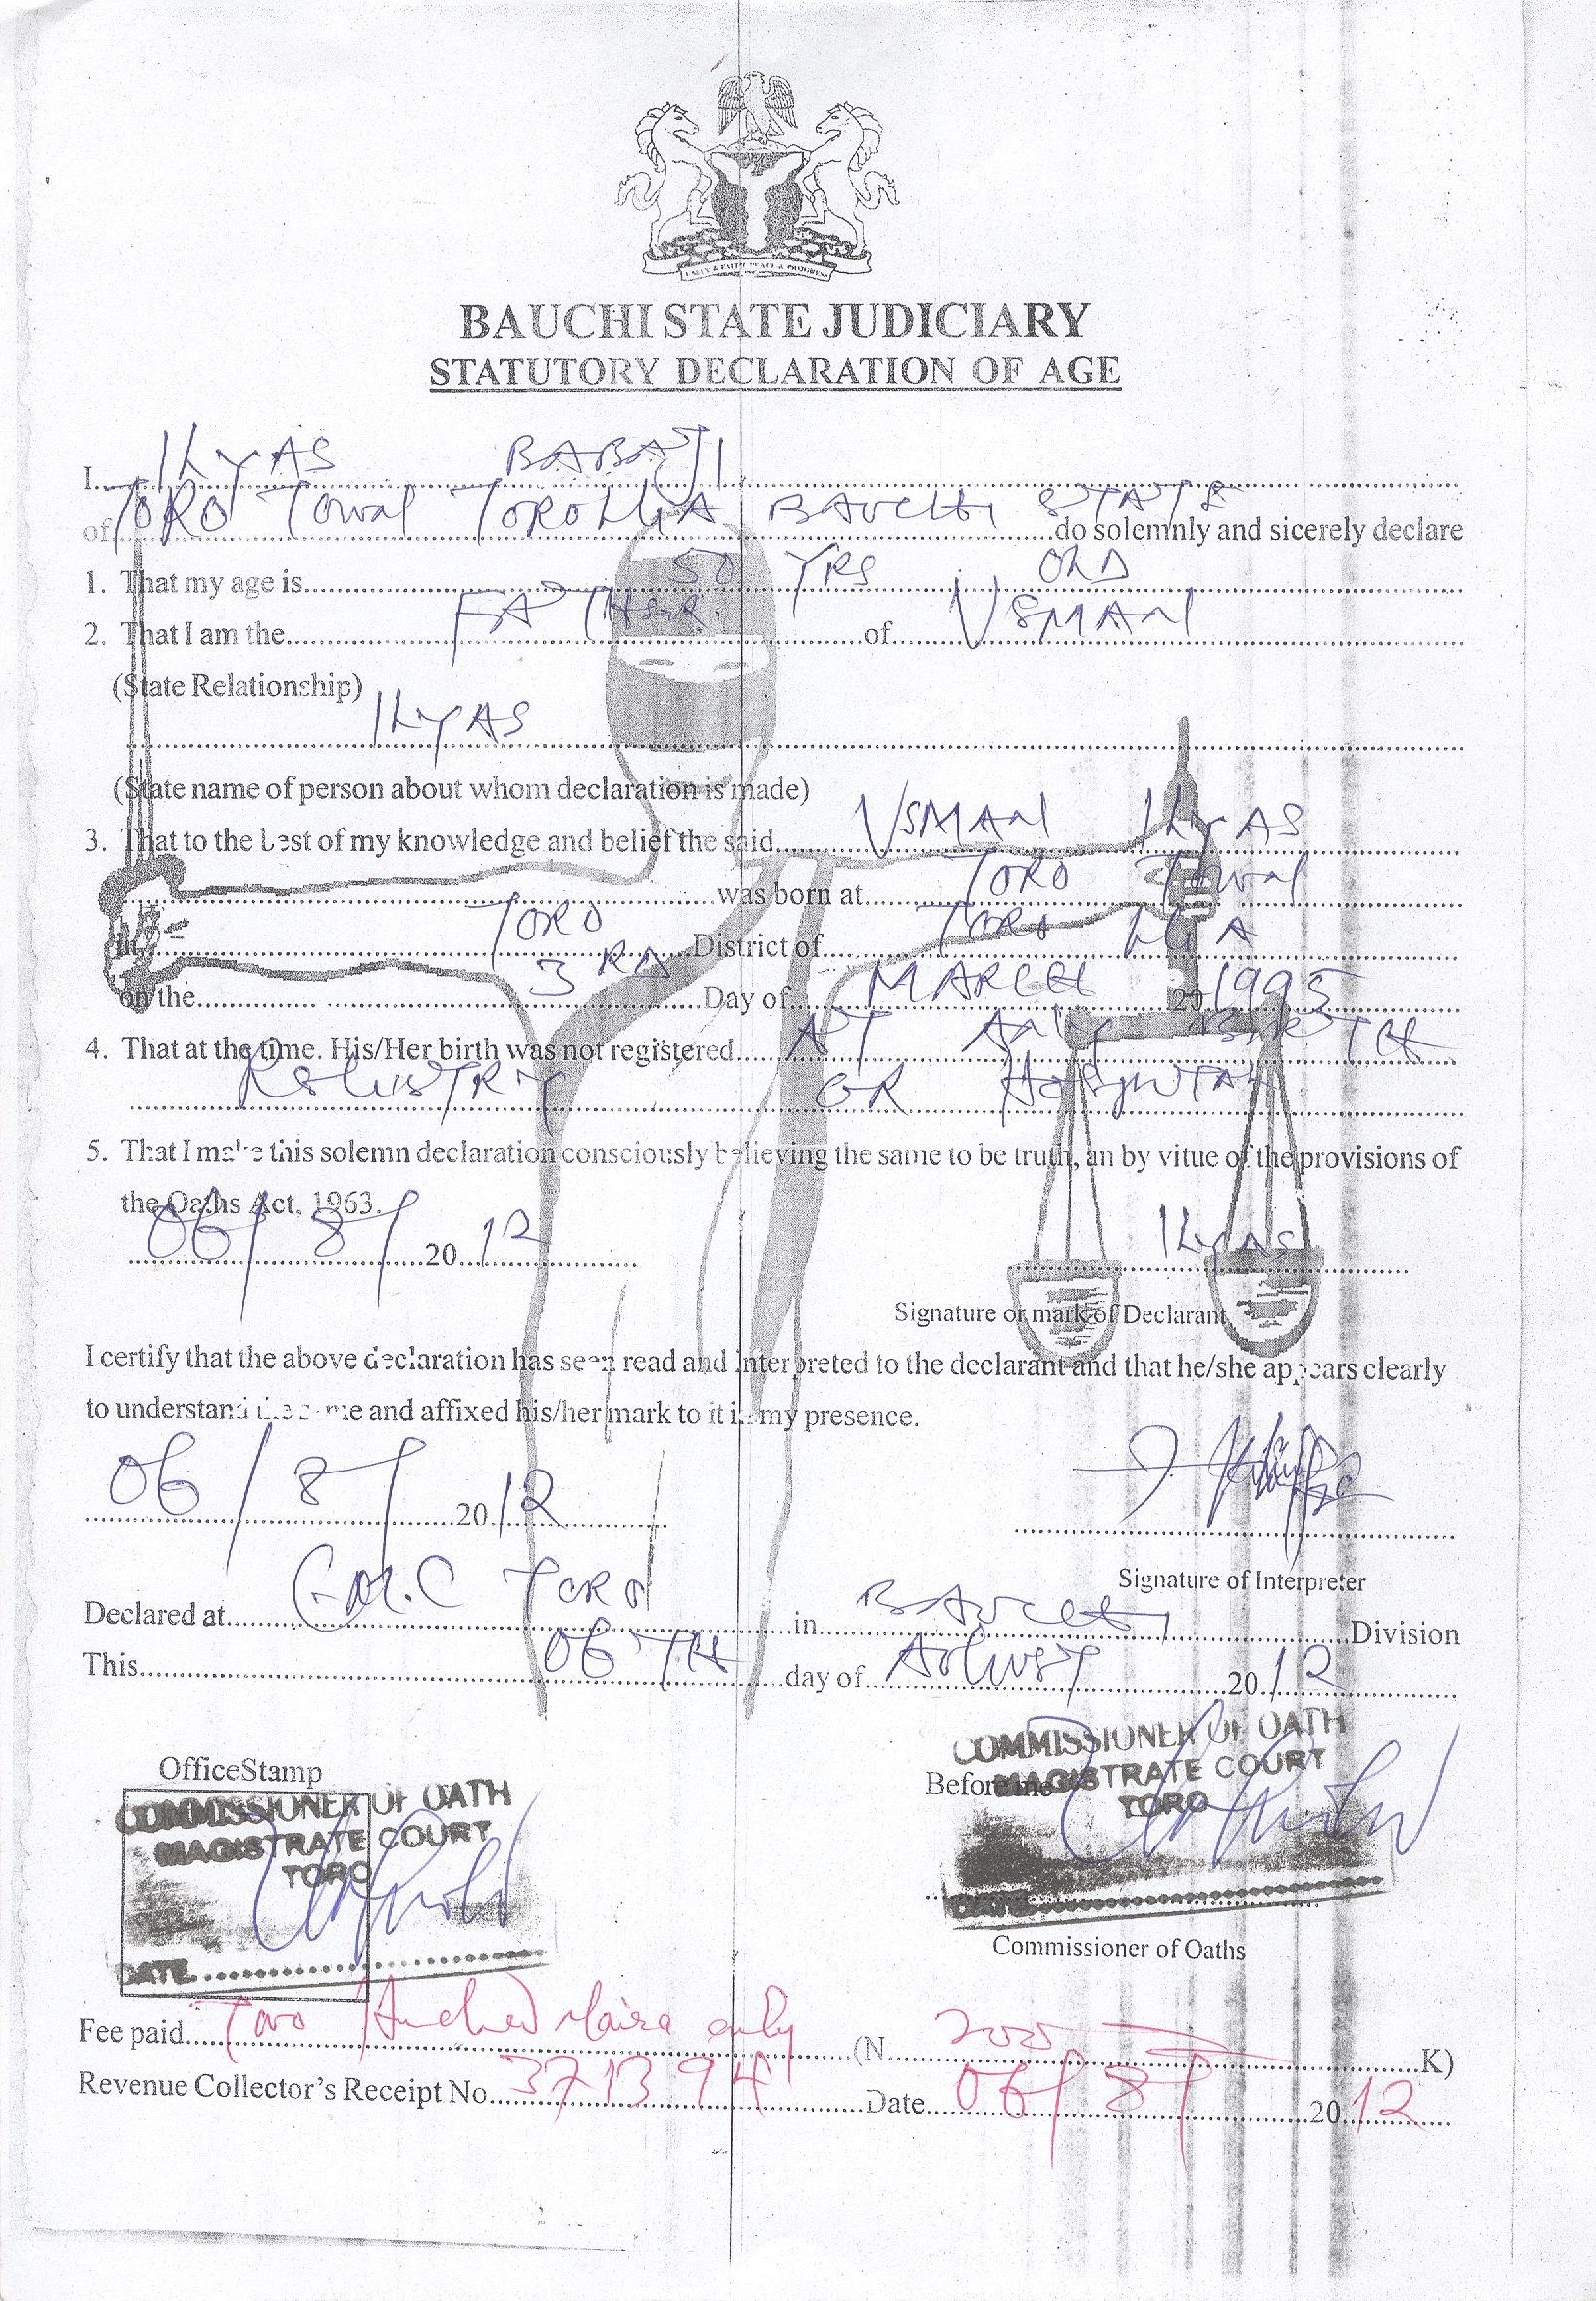 BAUCHI STATE JUDICIARY
STATUTORY DECLARATION OF AGE
I ILYAS BABAJI
of TORO TOWN TORO LGA BAUCHI STATE do solemnly and sicerely declare
1. That my age is 50 YRS OLD
2. That I am the FATHER of USMAN
(State Relationship)
ILYAS
(State name of person about whom declaration is made)
3. That to the best of my knowledge and belief the said USMAN ILYAS
was born at TORO TOWN
in TORO District of TORO LGA
on the 3RD Day of MARCH 20 1995
4. That at the time. His/Her birth was not registered AT ANY BIRTH
REGISTRY OR HOSPITAL
5. That I make this solemn declaration consciously believing the same to be truth, an by vitue of the provisions of
the Oaths Act, 1963.
06/8/ 20 12
ILYAS
Signature or mark of Declarant
I certify that the above declaration has seen read and interpreted to the declarant and that he/she appears clearly
to understand the same and affixed his/her mark to it in my presence.
06/8/ 20 12
Signature of Interpreter
Declared at TORO in BAUCHI Division
This 06TH day of AUGUST 20 12
OfficeStamp
COMMISSIONER OF OATH
MAGISTRATE COURT
TORO
DATE
Before me
COMMISSIONER OF OATH
MAGISTRATE COURT
TORO
DATE
Commissioner of Oaths
Fee paid Two Hundred Naira only (N K)
Revenue Collector's Receipt No. 371394 Date 06/8/ 20 12